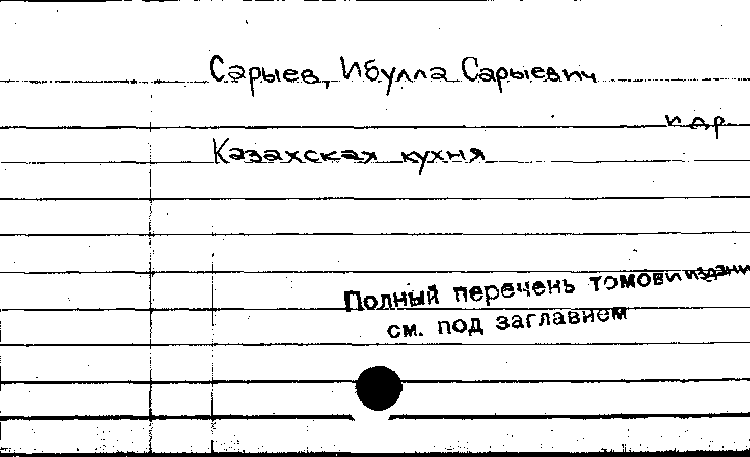 Сарыев, Ибулла Сарыевич
и др.
Казахская кухня
Полный перечень томов и издани
см. под заглавием